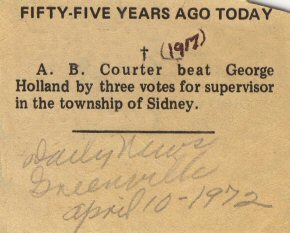 FIFTY-FIVE YEARS AGO TODAY
† (1917)
A. B. Courter beat George
Holland by three votes for supervisor
in the township of Sidney.
Daily News
Greenville
April 10-1972